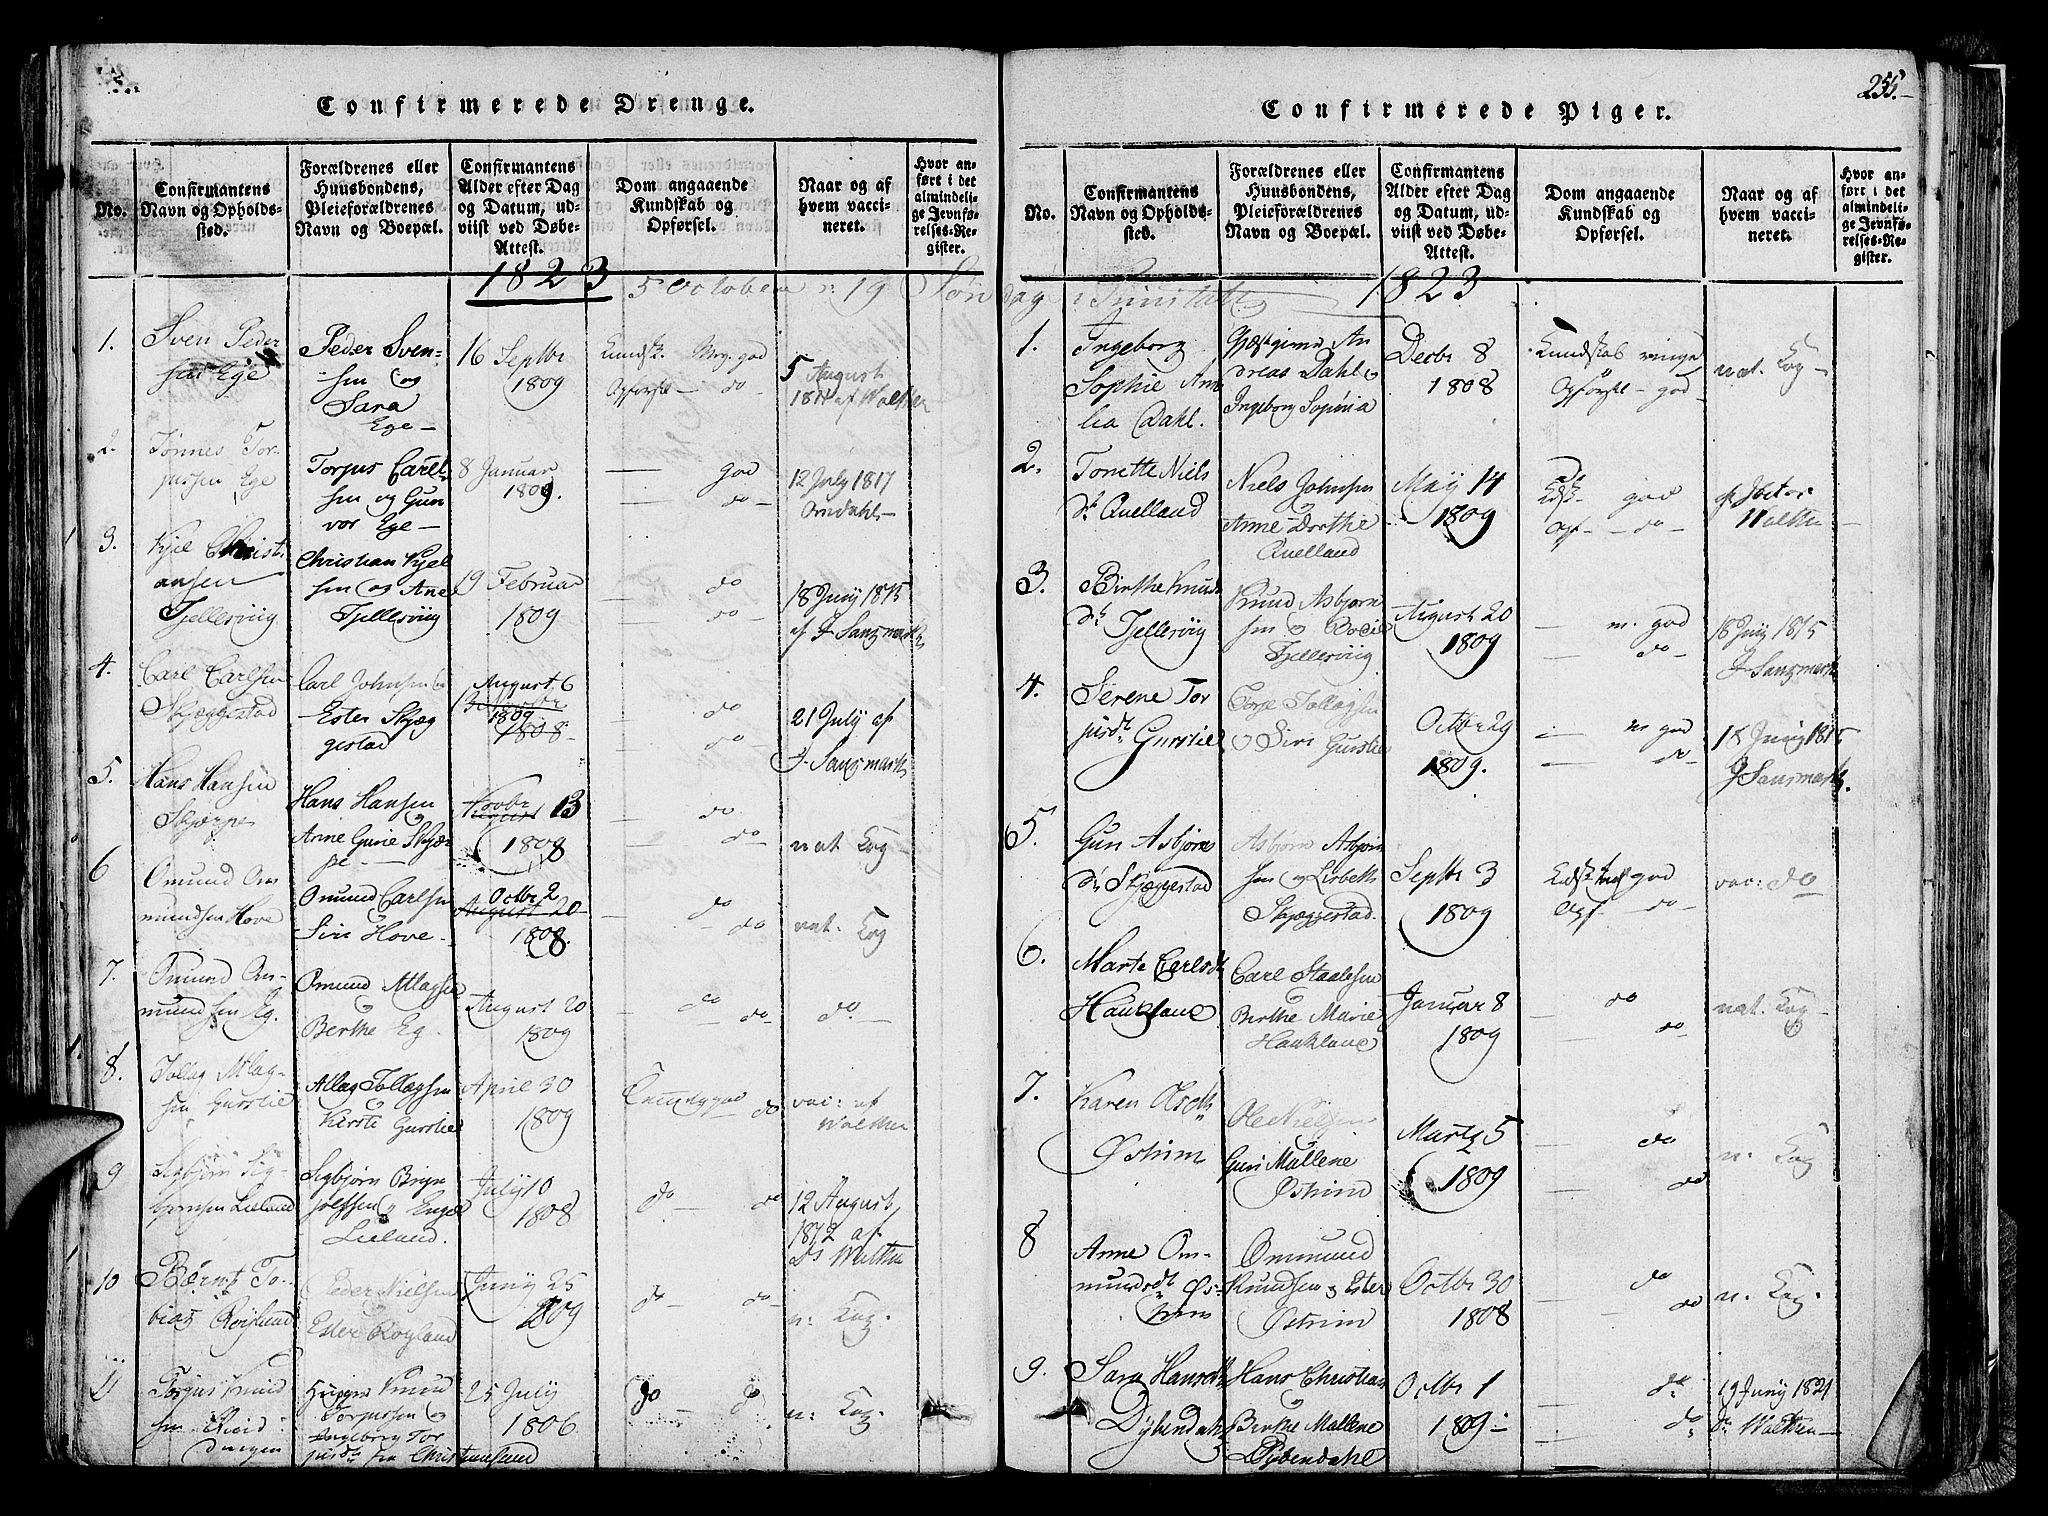 Confirmerede Drenge.
No.
Confirmantens
Navn og Opholds-
sted.
Forældrenes eller
Huusbondens,
Pleieforældrenes
Navn og Boepæl.
Confirmantens
Alder efter Dag
og Datum, ud-
viist ved Døbe-
Attest.
Dom angaaende
Kundskab og
Opførsel.
Naar og af
hvem vacci-
neret.
Hvor an-
ført i det
almindeli-
ge Jevnfø-
relses-Re-
gister.
1823
5 October 19 Søndag Trinitatis
1.
Sven Peder
sen Ege
Peder Sven-
sen og
Sara
Ege
16 Septbr
1809
Kundsk. Mg. god
Opførsel - do
5 August
1811 af Walther
2.
Tønnes Tor-
jussen Ege
Torjus Carel-
sen og Gun
vor Ege
8 Januar
1809.
god
do
12 July 1817
Omdahl
3.
Kjel Christi
ansen
Fjellesviig
Christian Kjel
sen og Ane
Fjellesviig
19 Februar
1809
do
do
18 Juny 1815
af J Sangmark
4.
Carl Carlsen
Skjeggestad
Carl Johnsen
Ester Skjæg
gestad
August 6
1809
1808
do
do
21 July af
J. Sangmark
5.
Hans Hansen
Skjerpe
Hans Hansen
Anne Gurie Skjær
pe
Novbr 13
August
1808
do
do
nat Kog
6
Omund Om
mundsen Hove
Omund Carlsen
Siri Hove
Octbr 2
August 20
1808.
do
do
nat. Kog
7.
Omund Om-
mundsen Eg.
Omund Atlagsen
Berthe Eg.
August 20
1809
do
do
do
8.
Tollag Atlag-
sen Gurslie
Atlag Tollagsen
Kirste Gurslie
April 30
1809
do
vac: af
Walther
9
Sigbjørn Sig-
bjørnsen Lieland
Sigbjørn Bryn
jolfsen og Engel
Lieland.
July 10
1808
do
do
12 August
1812 af
Ds Walther
10
Bærnt To-
bias Røyland
Peder Nielsen
Ester Røyland
Juny 25
1809
do
do
n: Kog.
11
Torjus Knud
sen
Knud
Torjussen og
Ingeborg Tor
jusdr fra Christiansand
25 July
1806
do
do
n: Kog
Confirmerede Piger.
255.
No.
Confirmantens
Navn og Opholds-
sted.
Forældrenes eller
Huusbondens,
Pleieforældrenes
Navn og Boepæl.
Confirmantens
Alder efter Dag
og Datum, ud-
viist ved Døbe-
Attest.
Dom angaaende
Kundskab og
Opførsel.
Naar og af
hvem vacci-
neret.
Hvor an-
ført i det
almindeli-
ge Jevnfø-
relses-Re-
gister.
1823
1.
Ingeborg
Sophie Ama
lia Dahl.
Gjæstgiver An
dreas Dahl
Ingeborg Sophia
Decbr 8
1808
Kundskab ringe
Opførsel - god
nat. Kog
2.
Tonette Niels
dr Qvelland
Niels Johnsen
Anne Dorthe
Qvelland
May 14
1809
Kdsk god
Opf - do
af Doctor
Walther
3.
Birthe Knuds
dr Fjellesviig
Knud Asbjørn
sen og Bodil
Fjellesviig
August 20
1809
m. god
do
18 Juny 1815
J Sangmark
4.
Serene Tor
jusdr Gurslie
Torje Tollagsen
Siri Gurslie
Octbr 29
1809.
m god
do
18 Juny 1815
J Sangmark.
5.
Gun Asbjørns
dr Skjeggestad
Asbjørn Asbjørn
sen og Lisbeth
Skjeggestad.
Septbr 3
1809
Kdsk god
Opf - do
vac: do
6.
Marte Carlsdr
Haukland
Carl Staalesen
Berthe Marie
Haukland
Januar 8
1809
do
do
nat. Kog
7.
Karen Olsdr
Østrim
Ole Nielsen
Guri Mallene
Østrim
Marts 5
1809
do
do
n. Kog
8
Anne Om-
mundsdr Øs-
trim
Ommund
Knudsen og Ester
Østrim
Octbr 30
1808
do
do
n. Kog.
9.
Sara Hansdr
Dybendahl
Hans Christian
Berthe Mallene
Dybendahl
Octbr 1
1809
do
do
19 Juny 1821
Dr Walther